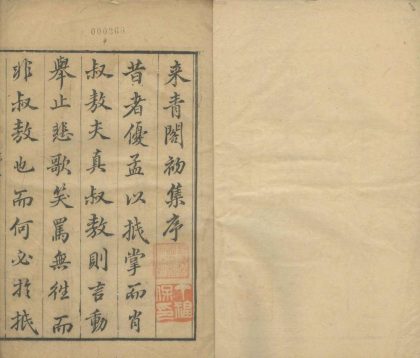 来青閣初集序
昔者優孟以抵掌而肖
叔敖夫真叔敖則言動
舉止悲歌笑罵無徃而
非叔敖也而何必於抵
000268